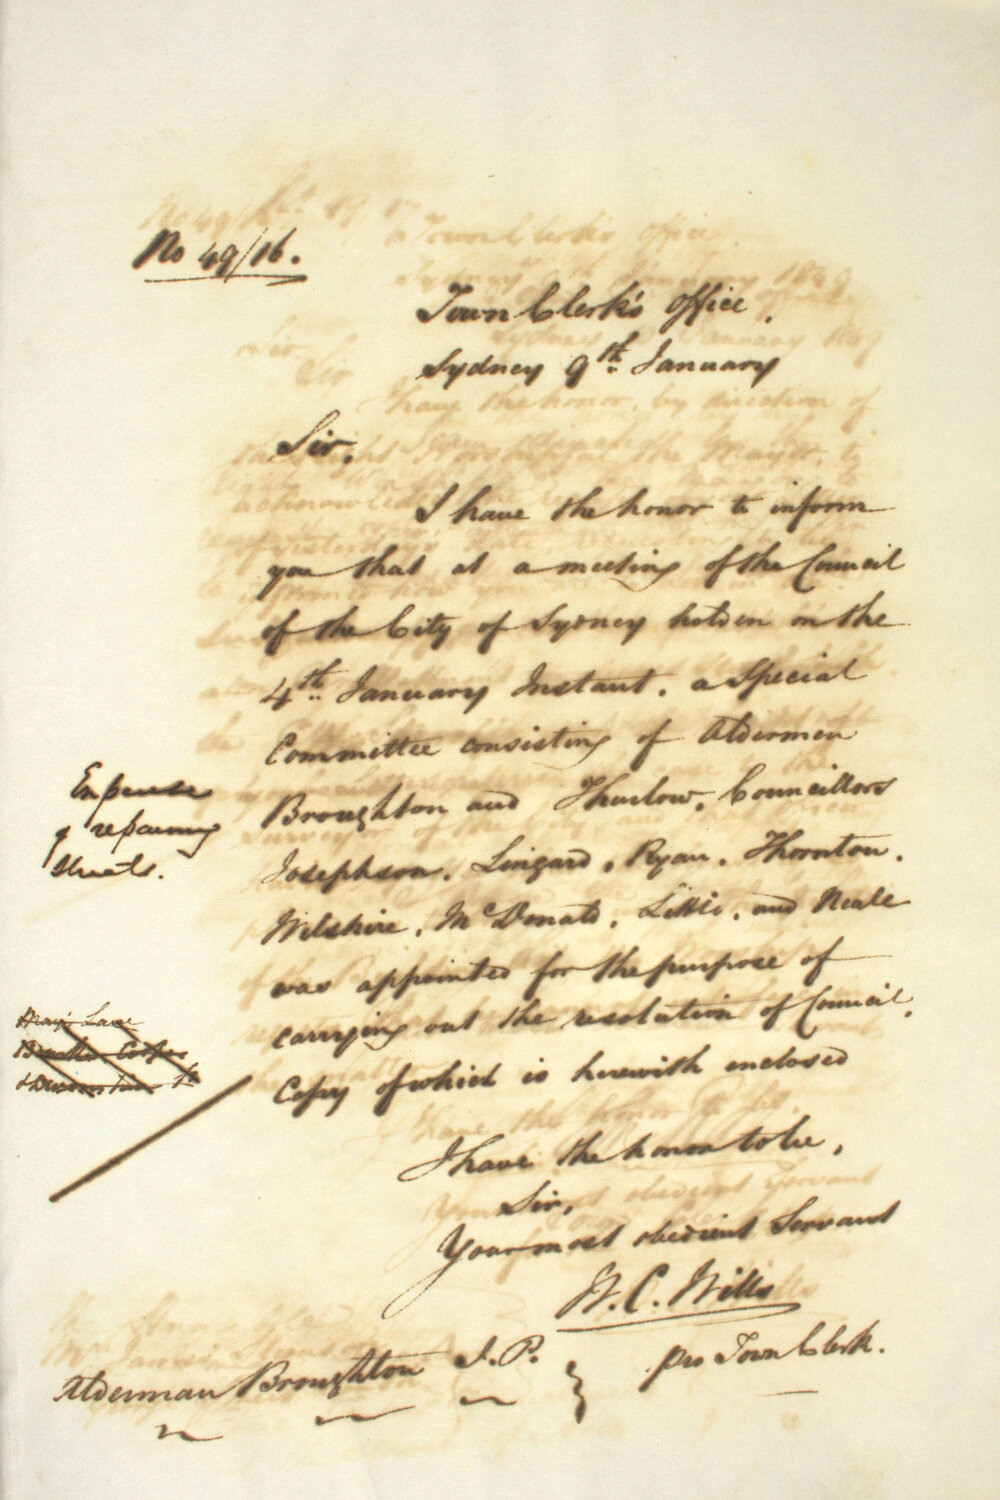 No 49/16.
Town Clerk's Office.
Sydney 9th January
Sir,
I have the honor to inform
you that at a meeting of the Council
of the City of Sydney holden on the
4th January Instant, a Special
Committee consisting of Aldermen
Broughton and Thurlow, Councillors
Josephson, Lingard, Ryan, Thornton,
Wilshire, McDonald, Little, and Neale
was appointed for the purpose of
carrying out the resolution of Council,
Copy of which is herewith enclosed
I have the honor to be,
Sir,
Your most obedient Servant
W. C. Wills
pro Town Clerk.
Alderman Broughton J.P.
Expense
of repairing
Streets.
Lane